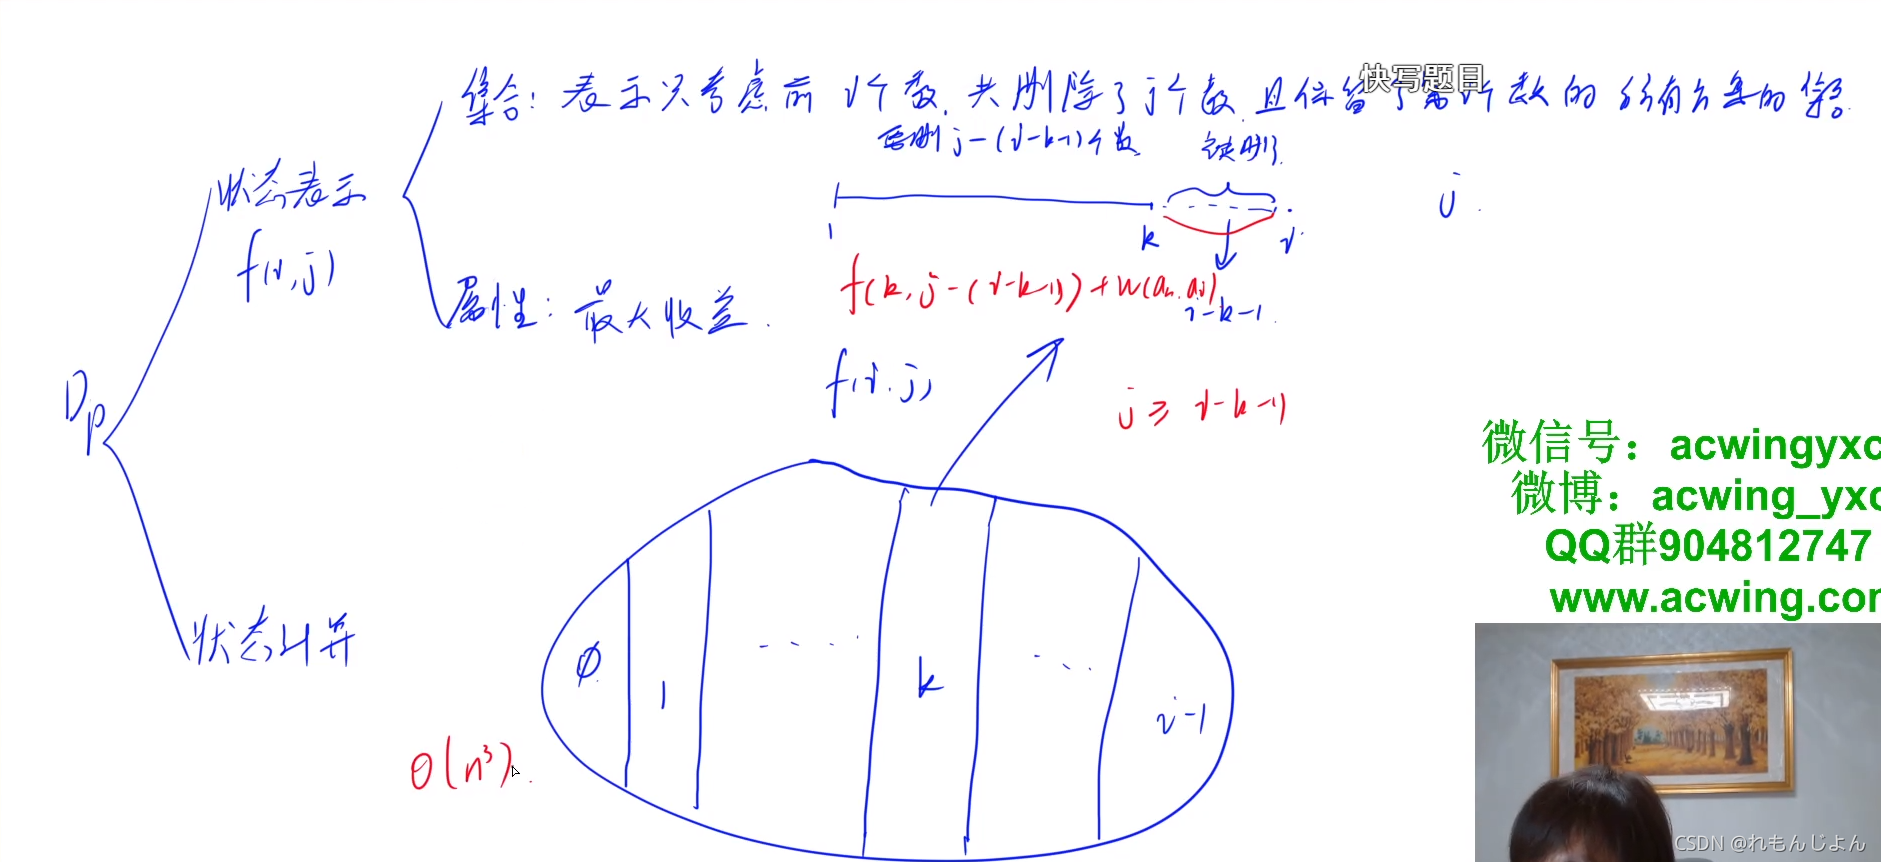 快写题目
集合：表示只考虑前 i个数，共删除了j个数，且保留了第i个数的所有方案的集合.
要删 j-(i-k-1)个数
j
状态表示
1
k
i
f(i,j)
f(k, j-(i-k-1))+w(
属性：最大收益.
i-k-1
f(i,j)
DP
j ≥ i-k-1
微信号：acwingyxc
微博：acwing_yxc
QQ群904812747
www.acwing.co
状态计算
0
1
k
i-1
O(n³)
CSDN @れもんじよん